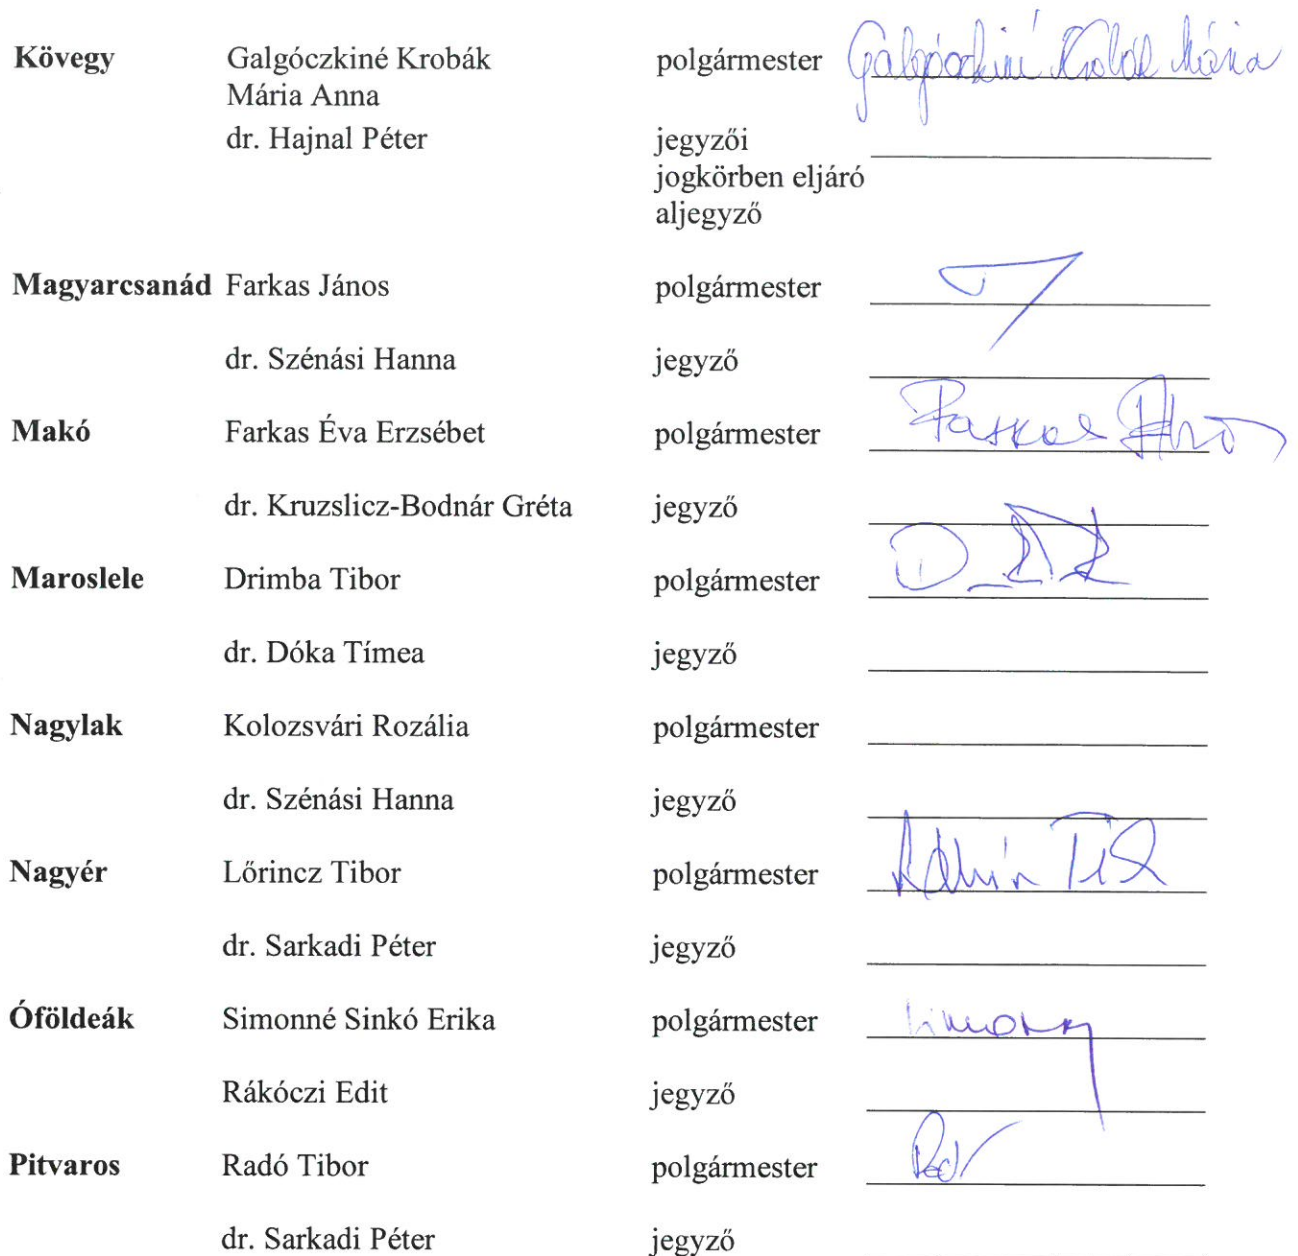 Kövegy Galgóczkiné Krobák polgármester Galgóczkiné Krobák Mária
Mária Anna
dr. Hajnal Péter jegyzői
jogkörben eljáró
aljegyző
Magyarcsanád Farkas János polgármester
dr. Szénási Hanna jegyző
Makó Farkas Éva Erzsébet polgármester Farkas Éva
dr. Kruzslicz-Bodnár Gréta jegyző
Maroslele Drimba Tibor polgármester
dr. Dóka Tímea jegyző
Nagylak Kolozsvári Rozália polgármester
dr. Szénási Hanna jegyző
Nagyér Lőrincz Tibor polgármester
dr. Sarkadi Péter jegyző
Óföldeák Simonné Sinkó Erika polgármester
Rákóczi Edit jegyző
Pitvaros Radó Tibor polgármester
dr. Sarkadi Péter jegyző